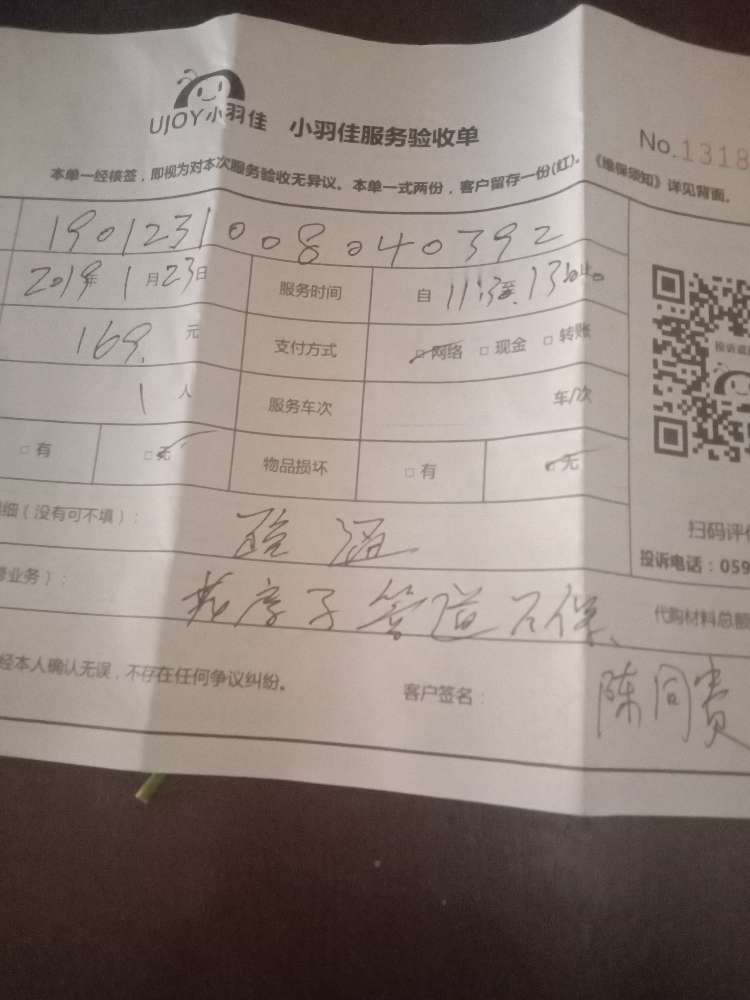 UJOY小羽佳 小羽佳服务验收单
No.1318
本单一经核签，即视为对本次服务验收无异议。本单一式两份，客户留存一份(红)。《维保须知》详见背面。
1901231008040392
2019年1月23日 服务时间 自 11:3至 13
169. 元 支付方式 □网络 □现金 □转账
1 人 服务车次 车/次
□有 □无 物品损坏 □有 □无
投诉
细（没有可不填）：
扫码评
投诉电话：059
修业务）： 管道不保、 代购材料总额
经本人确认无误，不存在任何争议纠纷。 客户签名： 陈同贵